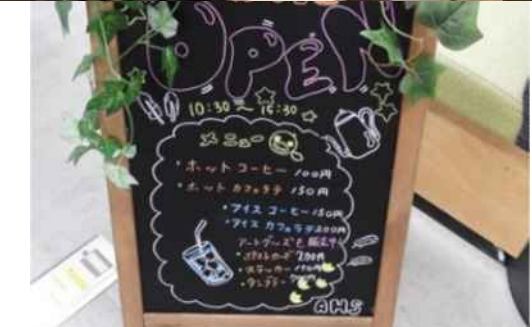 OPEN
10:30〜15:30
メニュー
・ホットコーヒー 100円
・ホットカフェラテ 150円
・アイスコーヒー 150円
・アイスカフェラテ 200円
アートグッズも販売中
・ポストカード 200円
・ステッカー
・タンブラー
AHS